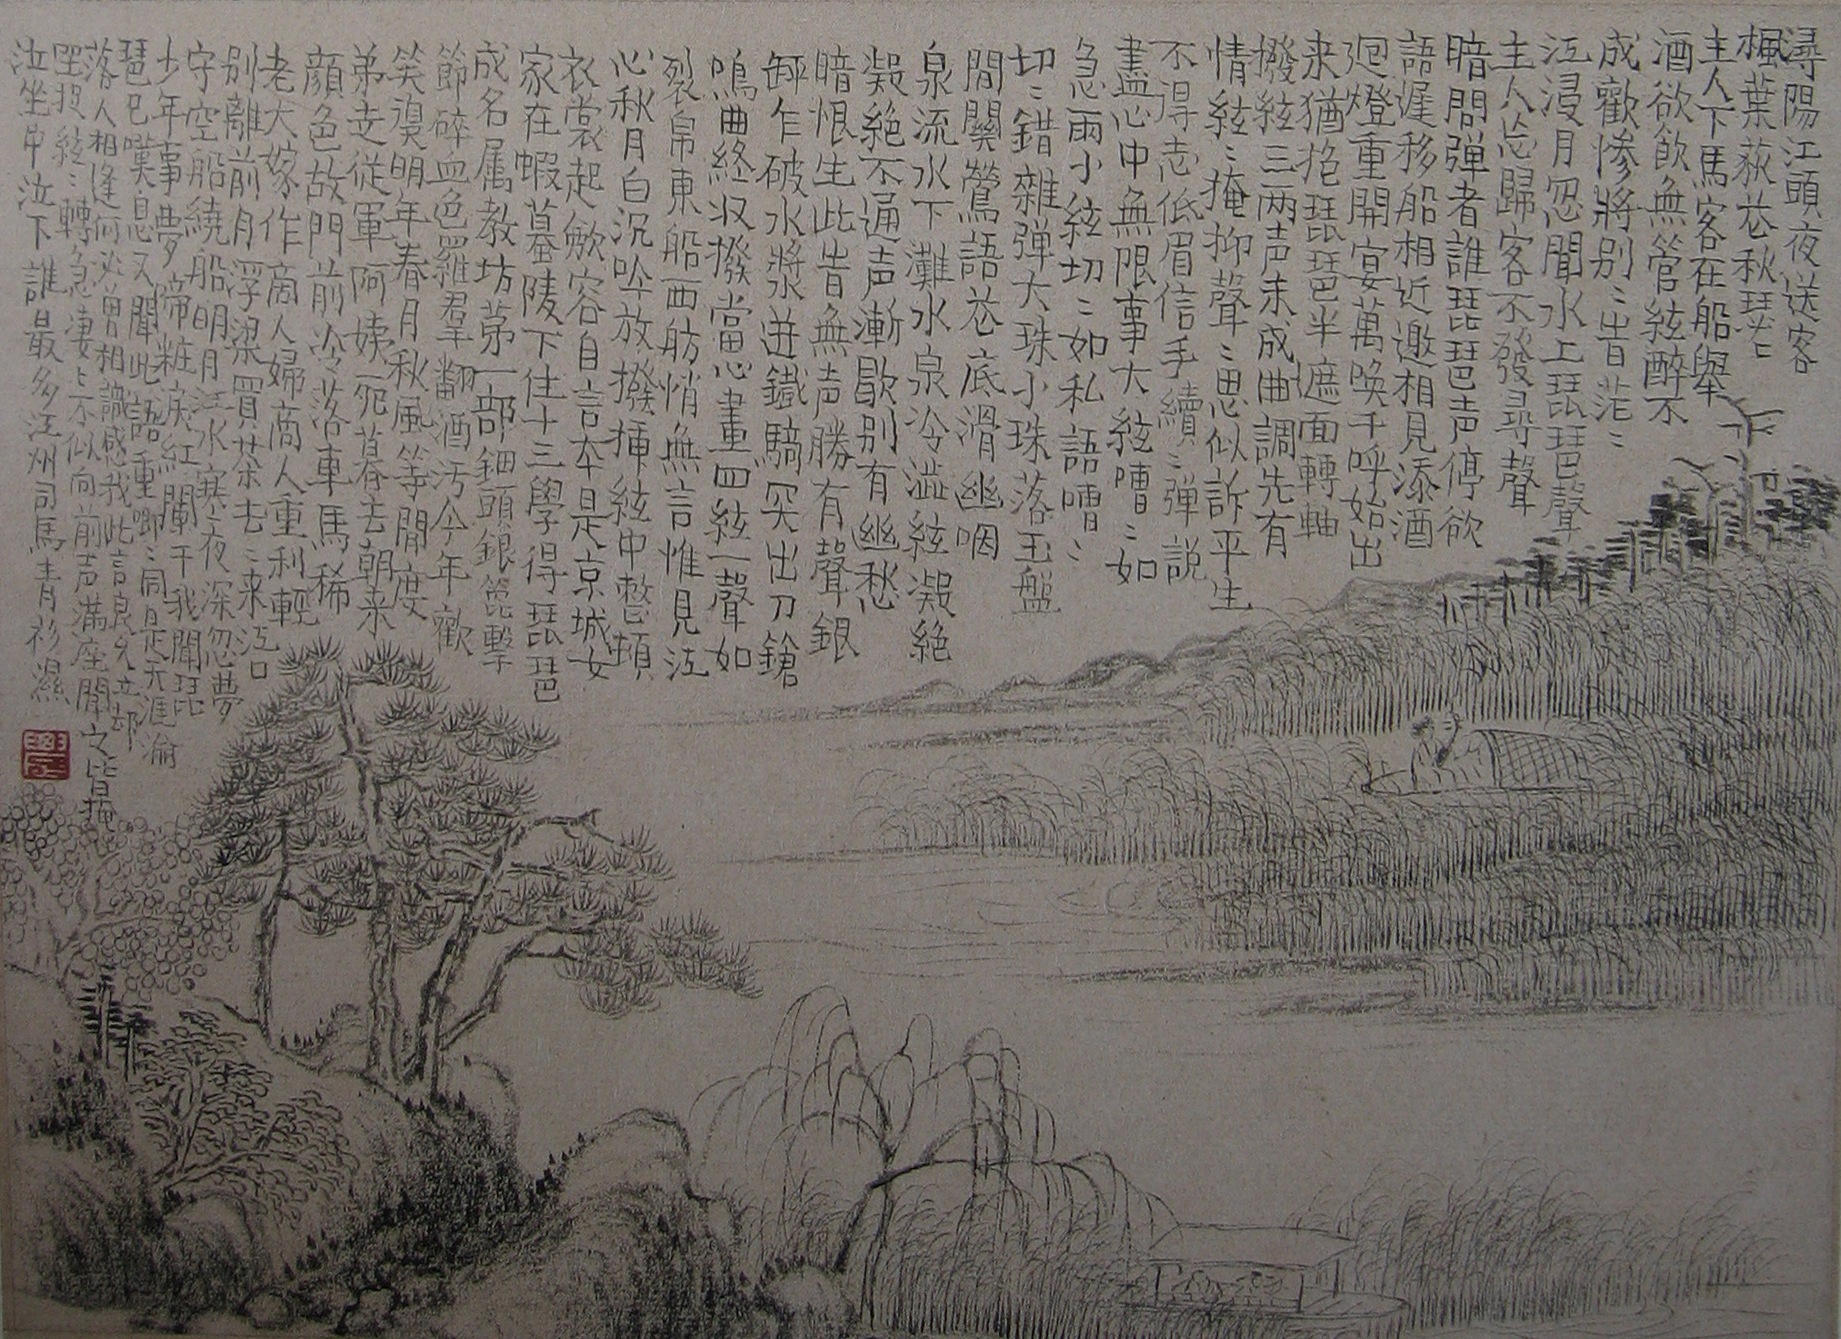 潯陽江頭夜送客
楓葉荻花秋瑟〻
主人下馬客在船舉
酒欲飲無管絃醉不
成歡慘將別〻旹茫〻
江浸月忽聞水上琵琶聲
主人忘歸客不發尋聲
暗問弹者誰琵琶声停欲
語遲移船相近邀相見添酒
迴燈重開宴萬喚千呼始出
来猶抱琵琶半遮面轉軸
撥絃三两声未成曲調先有
情絃〻掩抑聲〻思似訴平生
不得志低眉信手續〻弹說
盡心中無限事大絃嘈〻如
急雨小絃切〻如私語嘈〻
切〻錯雜弹大珠小珠落玉盤
間關鶯語花底滑幽咽
泉流水下灘水泉冷澁絃凝絕
凝絕不通声漸歇別有幽愁
暗恨生此旹無声勝有聲銀
缾乍破水漿迸鐵騎突出刀鎗
鳴曲終収撥當心畫四絃一聲如
裂帛東船西舫悄無言惟見江
心秋月白沉吟放撥揷絃中整頓
衣裳起歛容自言本是京城女
家在蝦蟇陵下住十三學得琵琶
成名属教坊苐一部鈿頭銀篦擊
節碎血色羅羣翻酒汚今年歡
笑復明年春月秋風等閒度
弟走從軍阿姨死暮去朝来
顏色故門前冷落車馬稀
老大嫁作商人婦商人重利輕
別離前月浮梁買茶去〻来江口
守空船繞船明月江水寒夜深忽夢
少年事夢啼粧淚紅闌干我聞琵
琶已嘆息又聞此語重唧〻同是天涯淪
落人相逢何必曾相識感我此言良久立却
坐投絃〻轉急凄〻不似向前声滿座聞之皆掩
泣坐中泣下誰最多江州司馬青衫濕